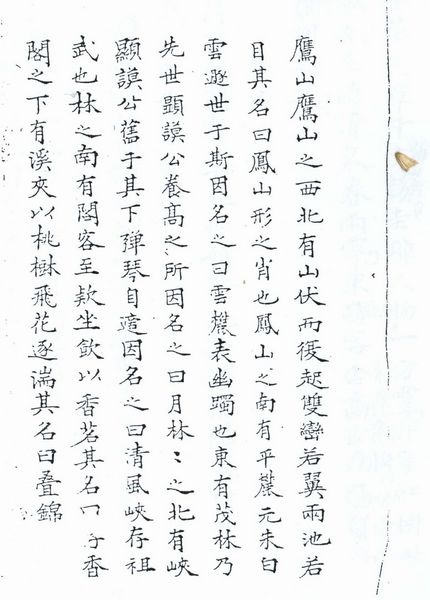 鷹山鷹山之西北有山伏而復起雙巒若翼兩池若
目其名曰鳳山形之肖也鳳山之南有平麓元末白
雲遯世于斯因名之曰雲麓表幽躅也東有茂林乃
先世顯謨公養高之所因名之曰月林〻之北有峽
顯謨公舊于其下彈琴自適因名之曰清風峽存祖
武也林之南有閣客至款坐飲以香茗其名曰香
閣之下有溪夾以桃樹飛花逐湍其名曰疊錦